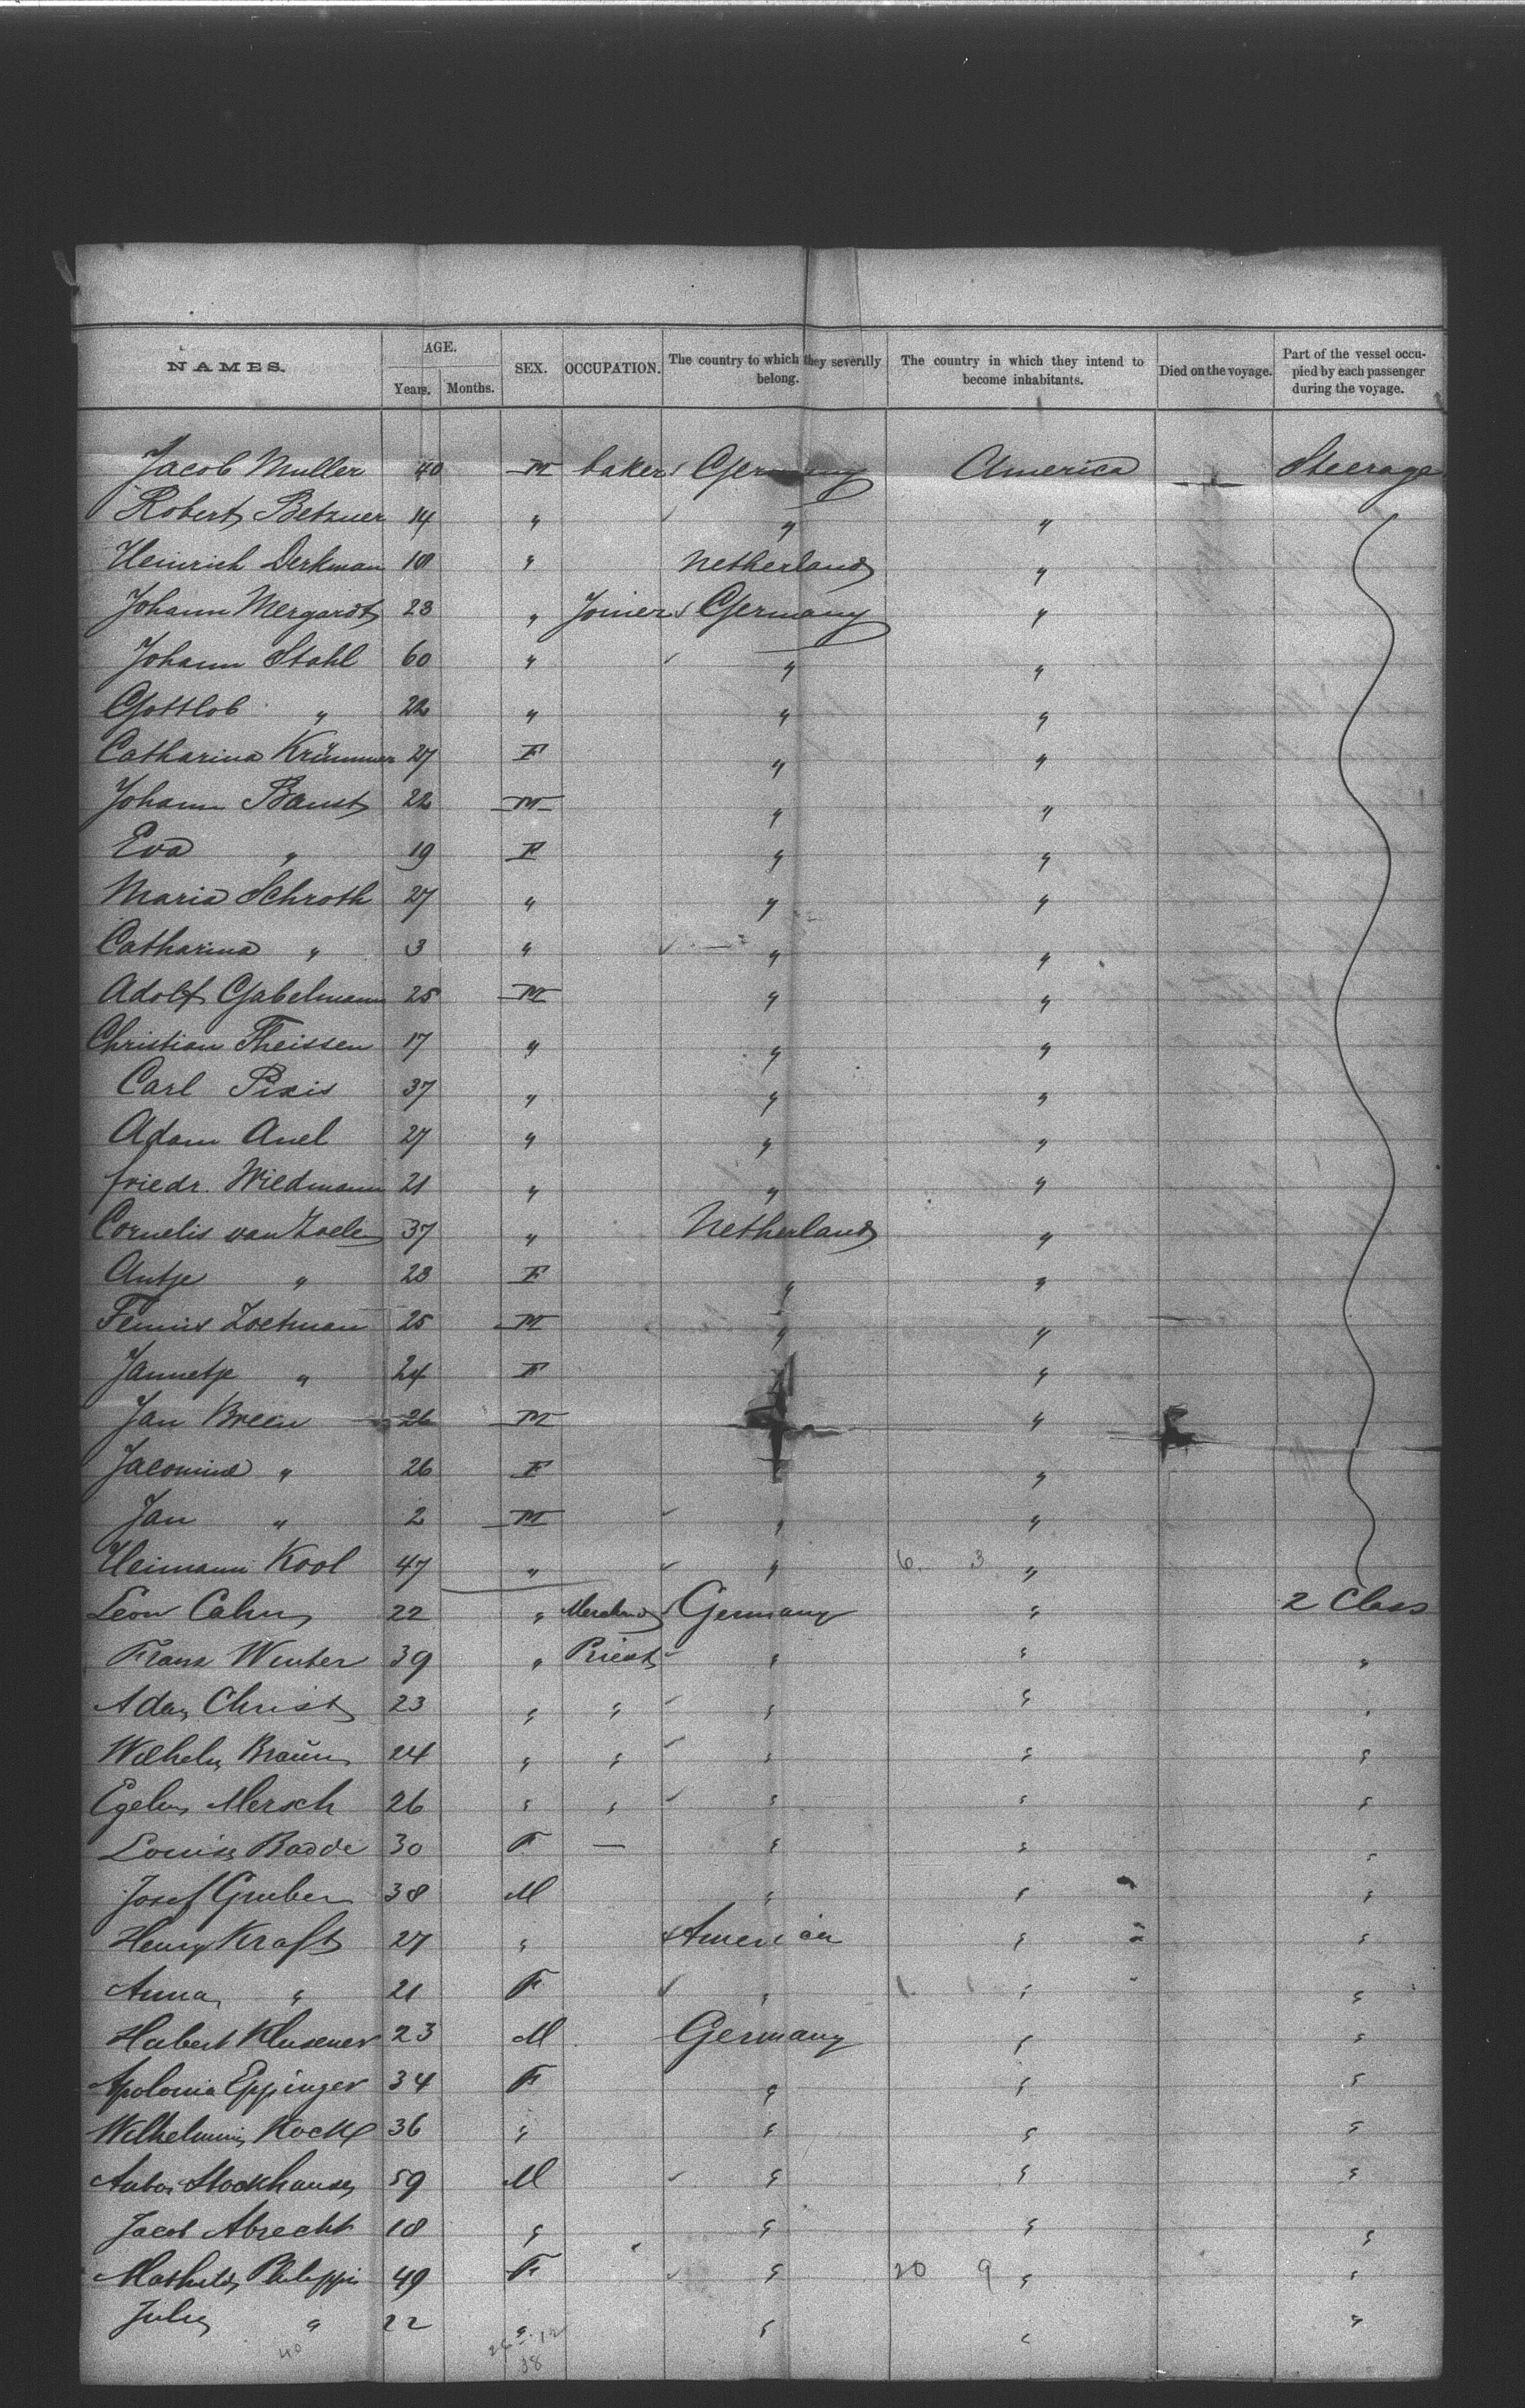 NAMES. AGE. Years. Months. SEX. OCCUPATION. The country to which they severally belong. The country in which they intend to become inhabitants. Died on the voyage. Part of the vessel occupied by each passenger during the voyage.
Jacob Muller 40 M baker Germany America Steerage
Robert Betzner 14 " " "
Heinrich Derkman 18 " Netherland "
Johann Mergardt 23 " Joiner Germany "
Johann Stahl 60 " " "
Gottlob " 22 " " "
Catharina Krümmer 27 F " "
Johann Banst 22 M " "
Eva " 19 F " "
Maria Schroth 27 " " "
Catharina " 3 " " "
Adolf Gabelmann 25 M " "
Christian Theissen 17 " " "
Carl Pixis 37 " " "
Adam Anel 27 " " "
friedr. Wiedmann 21 " " "
Cornelis van Zoelen 37 " Netherland "
Antje " 23 F " "
Zoetman 25 M " "
Jannetje " 24 F " "
Jan Breen 26 M "
Jacomina " 26 F "
Jan " 2 M " "
Heimann Kool 47 " " 6. 3 "
Leon Cahn 22 " Merchand Germany " 2 Class
Franz Winter 39 " Priest " " "
Adam Christ 23 " " " " "
Wilhelm Braün 24 " " " " "
Mersch 26 " " " " "
Louise Badde 30 F — " " "
Josef Gruber 38 M " " "
Henry Kraft 27 " American " "
Anna " 21 F " " "
Hubert Klusener 23 M Germany " "
Apolonia Eppinger 34 F " " "
Wilhelmine Kock 36 " " " "
Anton Stockhausen 59 M " " "
Jacob Abrecht 18 " " " "
Mathilde Philippi 49 F " 20 9 " "
Julie " 22 " " " "
40 26 12
38